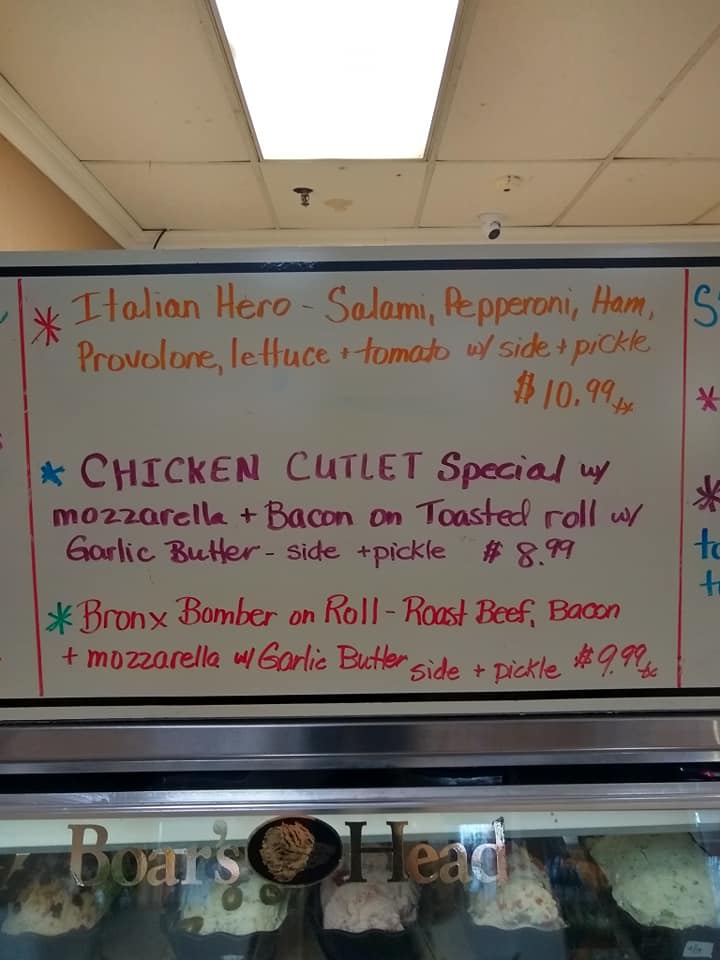 * Italian Hero - Salami, Pepperoni, Ham,
Provolone, lettuce + tomato w/ side + pickle
$10.99 tx
* CHICKEN CUTLET Special w/
mozzarella + Bacon on Toasted roll w/
Garlic Butter - side + pickle $8.99
* Bronx Bomber on Roll - Roast Beef, Bacon
+ mozzarella w/ Garlic Butter side + pickle $9.99 tx
Boar's Head